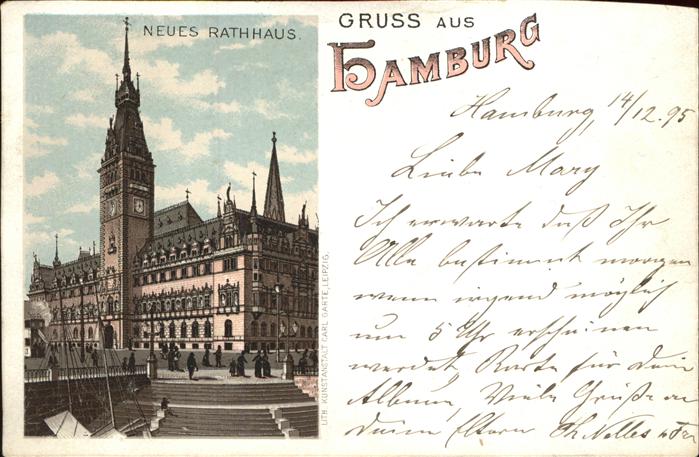 NEUES RATHHAUS.
GRUSS AUS
HAMBURG
Hamburg, 14/12.95
Liebe Mary
Ich erwarte daß Ihr
Alle bestimmt morgen
wenn irgend möglich
um 5 Uhr erscheinen
werdet, Karte für Dein
Album, Viele Grüße an
Deine Eltern Th. Nolles
LITH. KUNSTANSTALT CARL GARTE, LEIPZIG.